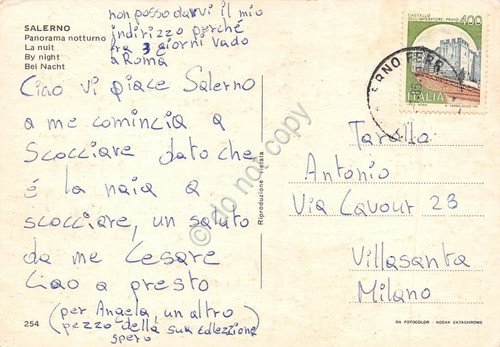 SALERNO
Panorama notturno
La nuit
By night
Bei Nacht
non posso darvi il mio
indirizzo perché
fra 3 giorni vado
a Roma
Ciao Vi piace Salerno
a me comincia a
Scocciare dato che
é la naia a
scocciare, un saluto
da me Cesare
Ciao a presto
(per Angela, un altro
pezzo della sua collezione
spero)
254
Riproduzione vietata
CASTELLO
DELL'IMPERATORE - PRATO
400
ITALIA
ERNO FERR
Tarallo
Antonio
Via Cavour 2B
Villasanta
Milano
DA FOTOCOLOR - KODAK EKTACHROME
do not copy